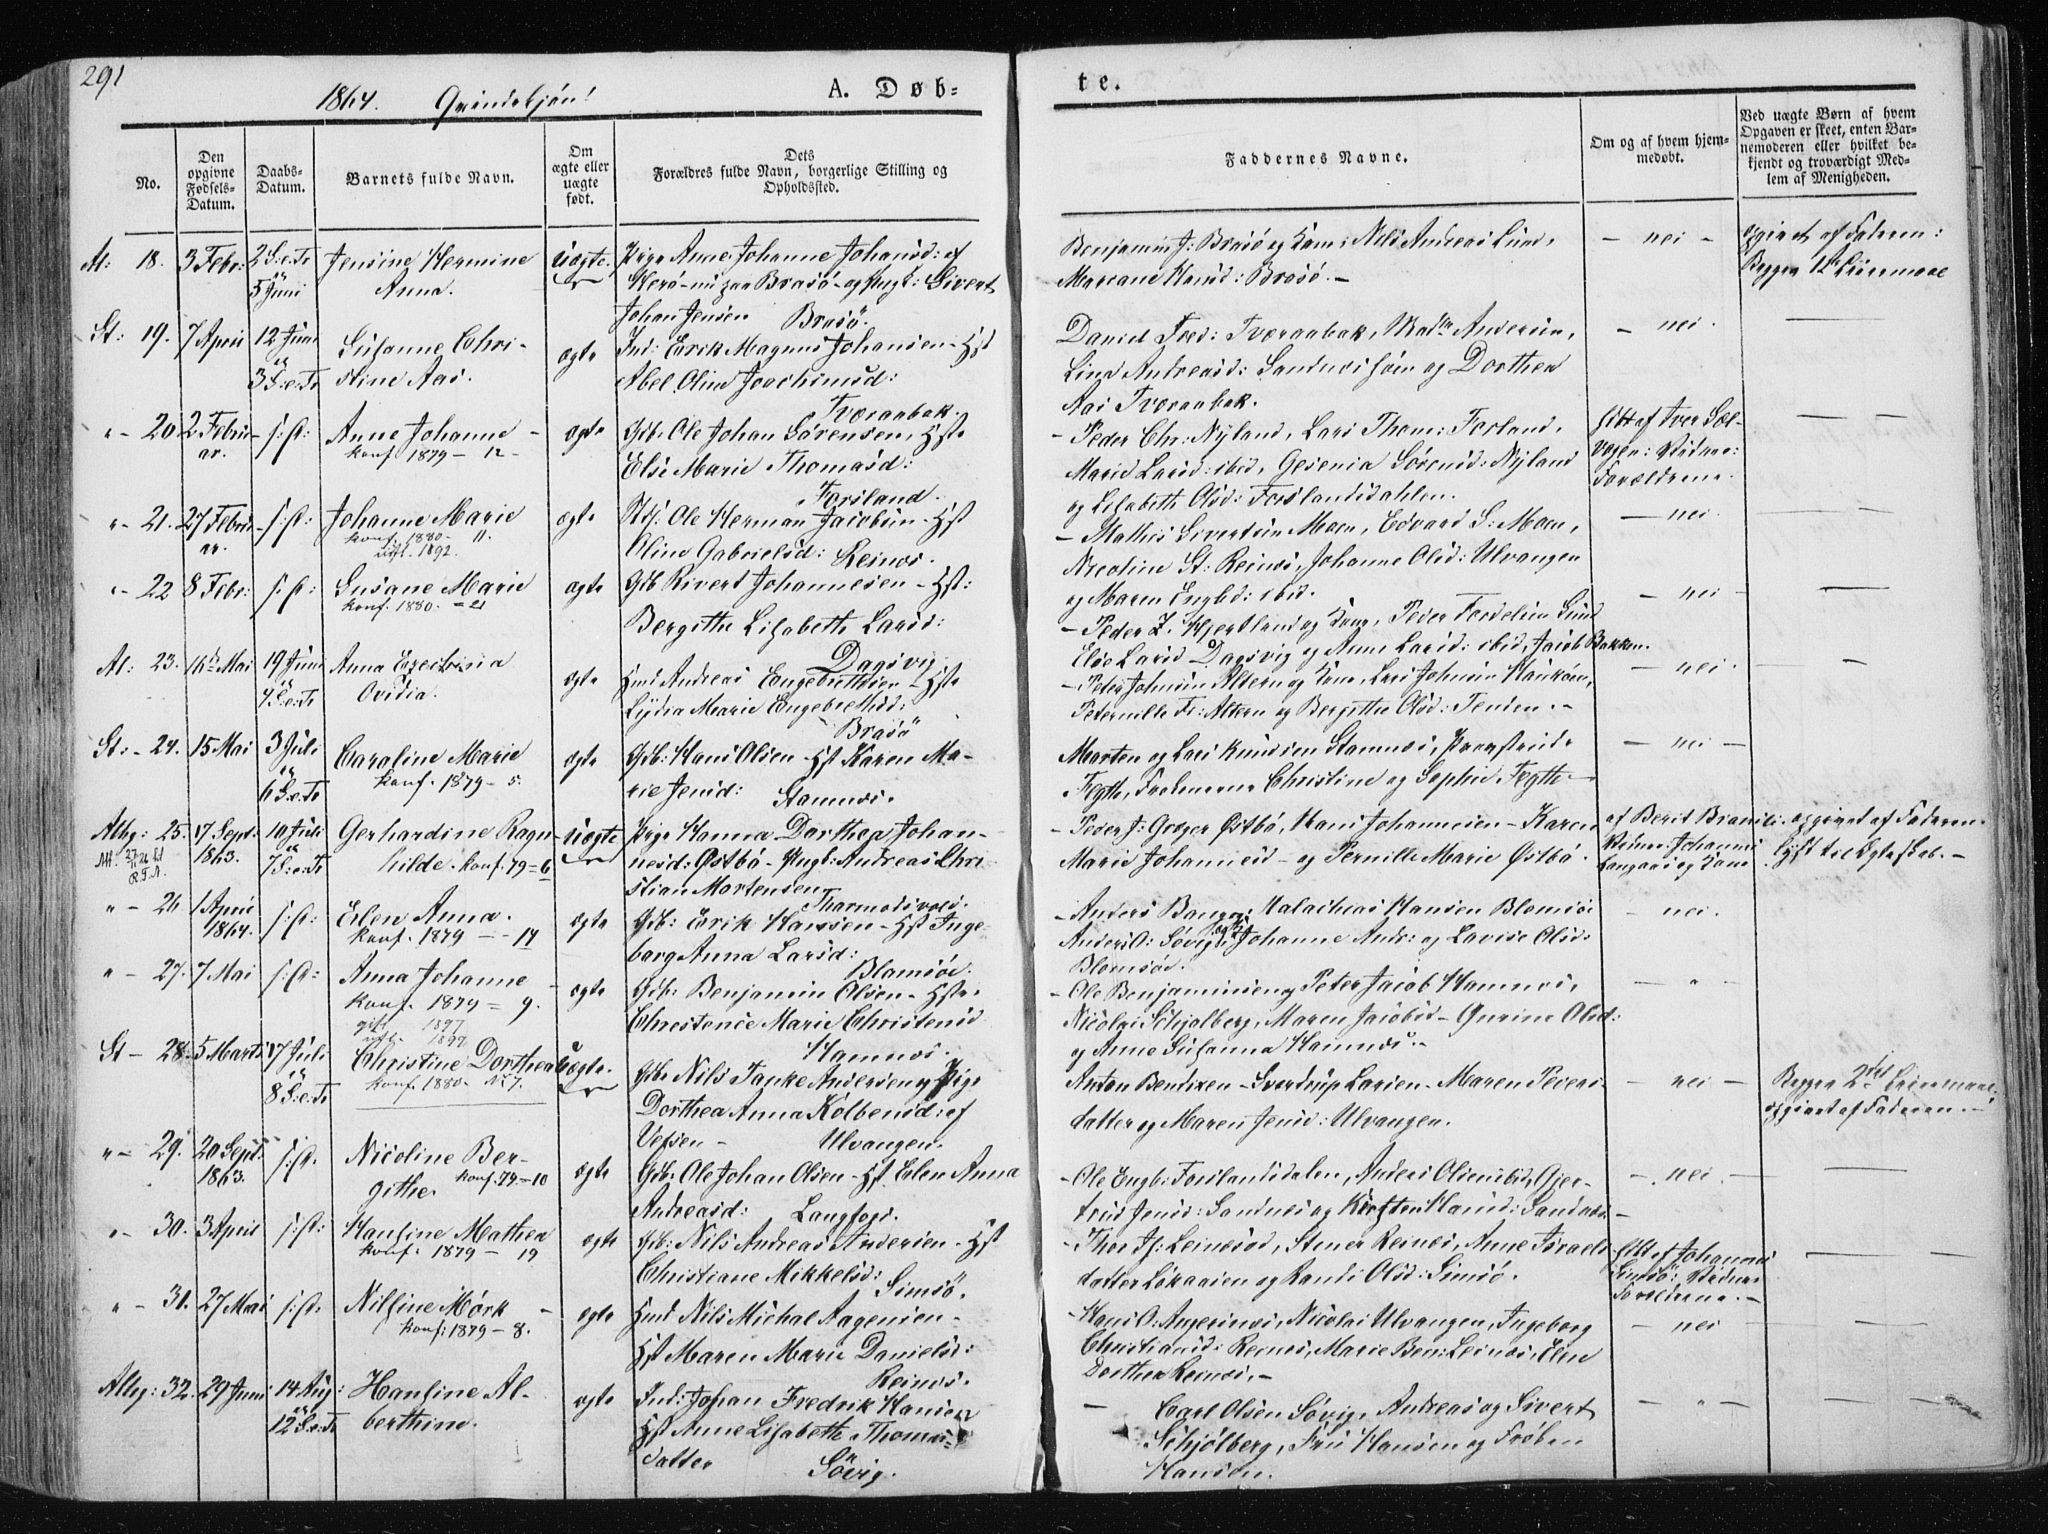 291
1864.
A. Døb-
te.
No.
Den opgivne Fødsels-Datum.
Daabs-Datum.
Barnets fulde Navn.
Om ægte eller uægte født.
Dets Forældres fulde Navn, borgerlige Stilling og Opholdssted.
Faddernes Navne.
Om og af hvem hjem-medøbt.
Ved uægte Børn af hvem Opgaven er skeet, enten Bar-nemoderen eller hvilket be-kjendt og troværdigt Med-lem af Menigheden.
Al: 18. 3 Febr: 2 S. e. Tr 5 Juni
Jensine Hermine
Anna.
uægte.
Pige Anne Johanne Johansd: af
Herø - nu paa Brasø - og Ungk: Sivert
Johan Jensen Brasø.
Benjamin J: Brasø og Kone: Nils Andreas Lund,
Mareane Hansd: Brasø. -
- nei -
opgivet af Faderen:
Begges 1ste Leiermaal
St: 19. 7 April 12 Juni 3 S. e. Tr
Susanne Chri-
stine Aas.
ægte
Ind: Erik Magnus Johansen - Hst
Abel Olina Joachimsd:
Tværaabak.
Daniel Fred: Tværaabak, Andersen,
Lina Andreasd: Sandnes og Dorthea
Aas Tværaabak.
- nei.
" - 20. 2 Febru-ar. s: st:
Anne Johanne -
konf. 1879 - 12 -
ægte
Gdb. Ole Johan Sørensen, Hst.
Else Marie Thomasd:
Forsland.
- Peder Chr: Nyland, Lars Thom: Forland,
Marie Larsd: ibid, Gesenia Sørensd: Nyland
og Lisabeth Olsd: Forslandsdahlen.
hdt af Iver Sæl-
vogen: Vidner:
Forældrene.
" - 21. 27 Febru-ar. s: st:
Johanne Marie
konf. 1880 - 11.
1892.
ægte
Ole Herman Jacobsen - Hst
Oline Gabrielsd: Reines.
- Mathis Sivertsen Moen, Edvard S: Moen,
Nicoline St. Reines, Johanne Olsd: Ulvangen
og Maren Engbd: ibid.
- nei
" - 22 8 Febr: s: st:
Susane Marie
konf. 1880. - 21
ægte
Gdb Sivert Johannesen - Hst:
Bergitha Lisabeth Larsd:
Dagsvig
- Peder Z. Hjertland og Kone, Peder
Else Larsd Dagsvig og Anne Larsd: ibid, Jacob Bakken.
- nei -
Al: 23. 16de Mai 19 Juni 4 S. e. Tr
Anna
Ovidia.
ægte
Hmd Andreas Engebrethsen - Hst.
Lydia Marie Engebrethsd:
Brasø
- Peder Johnsen Altern og Kone, Lars Johnsen
Peternille Fr: Altern og Bergithe Olsd: Tenden. -
- nei
St: - 24. 15 Mai 3 Juli 6 S. e. Tr
Caroline Marie
konf. 1879 - 5.
ægte
Gdb: Hans Olsen - Hst Karen Ma-
rie Jensd: Stamnes.
Morten og Lars Knudsen Stamnes,
Fogth, Frøknerne Christine og Sophie Fogth -
- nei -
Alhg: 25. 17 Sept: 1863. 10 Juli 7 S. e. Tr
Gerhardine Ragn
hilde. konf. 79 = 6
uægte
Pige Hanna Dorthea Johan-
nesd: Østbø - Ungk: Andreas Chri-
stian Mortensen
Tharmodsvold.
- Peder J: Greger Østbø, Hans Johannesen - Karen
Marie Johannesd - og Pernille Marie Østbø.
af Berit
Vidner: Johannes
Langaas og Kone
opgivet af Faderen.
Lyst til Egteskab. -
" - 26 1 April 1864. s: st:
Erlen Anna.
konf. 1879 - 14
ægte
Gdb: Erik Hansen - Hst Inge-
borg Anna Larsd:
Blomsøe.
- Anders Malachias Hansen Blomsøe
Anders O: Søvig Johanne Andr: og Lovise Olsd:
Blomsøe.
- nei.
" - 27. 7 Mai s: st:
Anna Johanne -
konf. 1879 = 9.
1897
ægte
Gdb. Benjamin Olsen - Hst.
Christence Marie Christensd
Hamnes.
- Ole Benjaminsen og Peter Jacob Hamnes,
Nicolai Schjølberg, Maren Jacobsd - Gurine Olsd:
og Anne Susanna Hamnes. -
- " -
St - 28. 5 Marts 17 Juli 8 S. e. Tr
Christine Dorthea
konf. 1880. No 7.
uægte.
Gdb. Nils Tanke Andersen og Pige
Dorthea Anna Kolbensd: af
Vefsen - Ulvangen.
Anton Bendixen - Sverdrup Larsen - Maren Peders-
datter og Maren Jensd: Ulvangen.
- nei -
Begges 2det Leiermaal,
opgivet af Faderen. -
" - 29. 20 Sept: 1863. s: st.
Nicoline Ber-
githe. konf. 79. = 10
ægte
Gdb. Ole Johan Olsen - Hst. Erlen Anna
Andreasd: Langfogs.
- Ole Engb: Forslandsdalen, Anders Olsen ibid, Gjer-
trud Jensd: Sandnes og Kirsten Hansd: Sandnes
- nei. -
" - 30. 3 April s: st:
Hansine Mathea
konf. 1879 - 19
ægte
Gdb: Nils Andreas Andersen - Hst
Christiane Mikkelsd:
Simsø.
- Thor J: Leinesod, Stener Reines, Anne Israels-
datter Løkaasen og Randi Olsd: Simsø.
hdt af Johannes
Simsø: Vidner
Forældrene. -
" - 31. 27 Mai s: st.
Nilsine Mørk -
konf: 1879 - 8.
ægte
Hmd Nils Michal Aagensen -
Hst Maren Marie Danielsd:
Reines.
- Hans O: Angersnes, Nicolai Ulvangen, Ingeborg
Christiansd: Reines, Marie Ben: Leines, Elen
Dorthea Reines. -
- nei -
Alhg: 32. 29 Juni 14 Aug: 12 S. e. Tr
Hansine Al-
berthine.
ægte
Ind: Johan Fredrik Hansen
Hst Anne Lisabeth Thomas-
datter Søvig.
- Carl Olsen Søvig, Andreas og Sivert
Schjølberg, Fru Hansen og Frøken
Hansen.
- " -